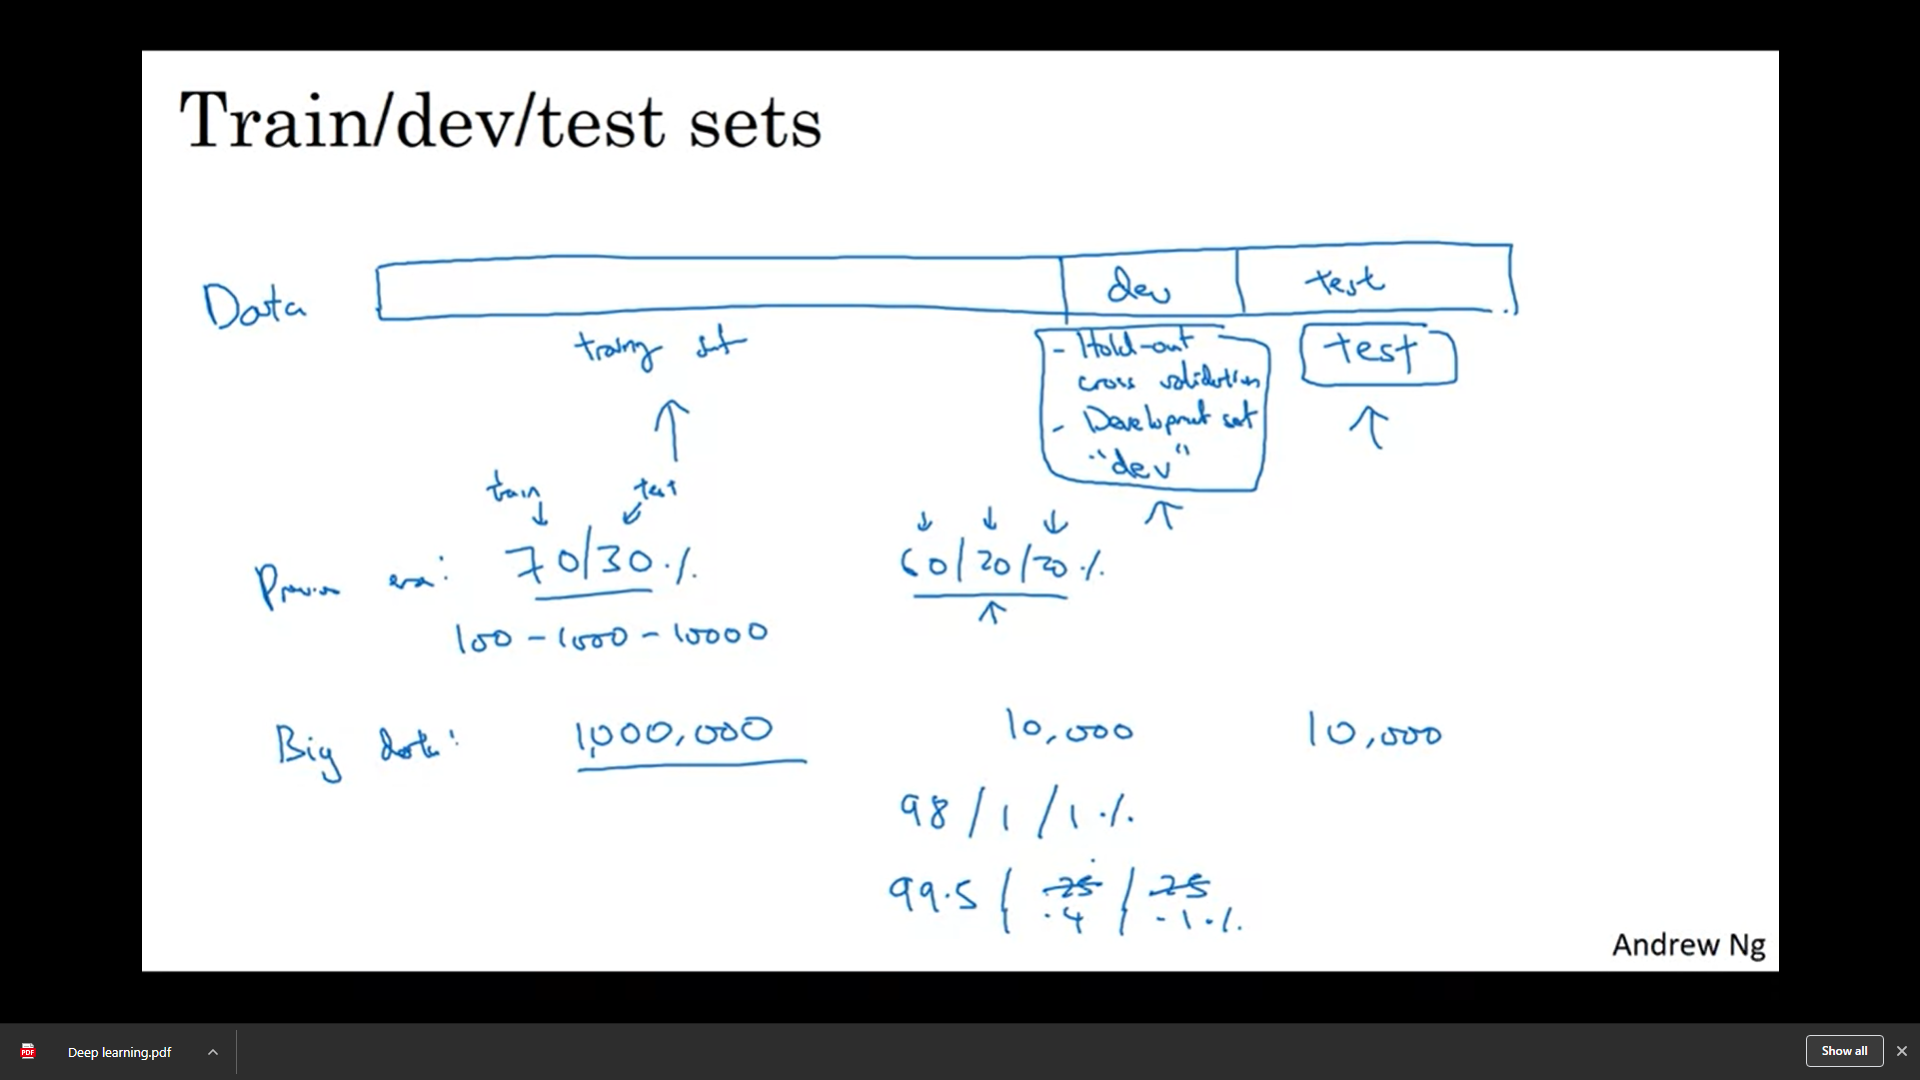 Train/dev/test sets
Data
dev
test
training set
- Hold-out
cross validation
- Development set
"dev"
test
train
test
Previous era:
70/30 %
60/20/20 %
100 - 1000 - 10000
Big data:
1,000,000
10,000
10,000
98 / 1 / 1 %
99.5 / .25 / .25
.4 .1 %
Andrew Ng
Deep learning.pdf
Show all